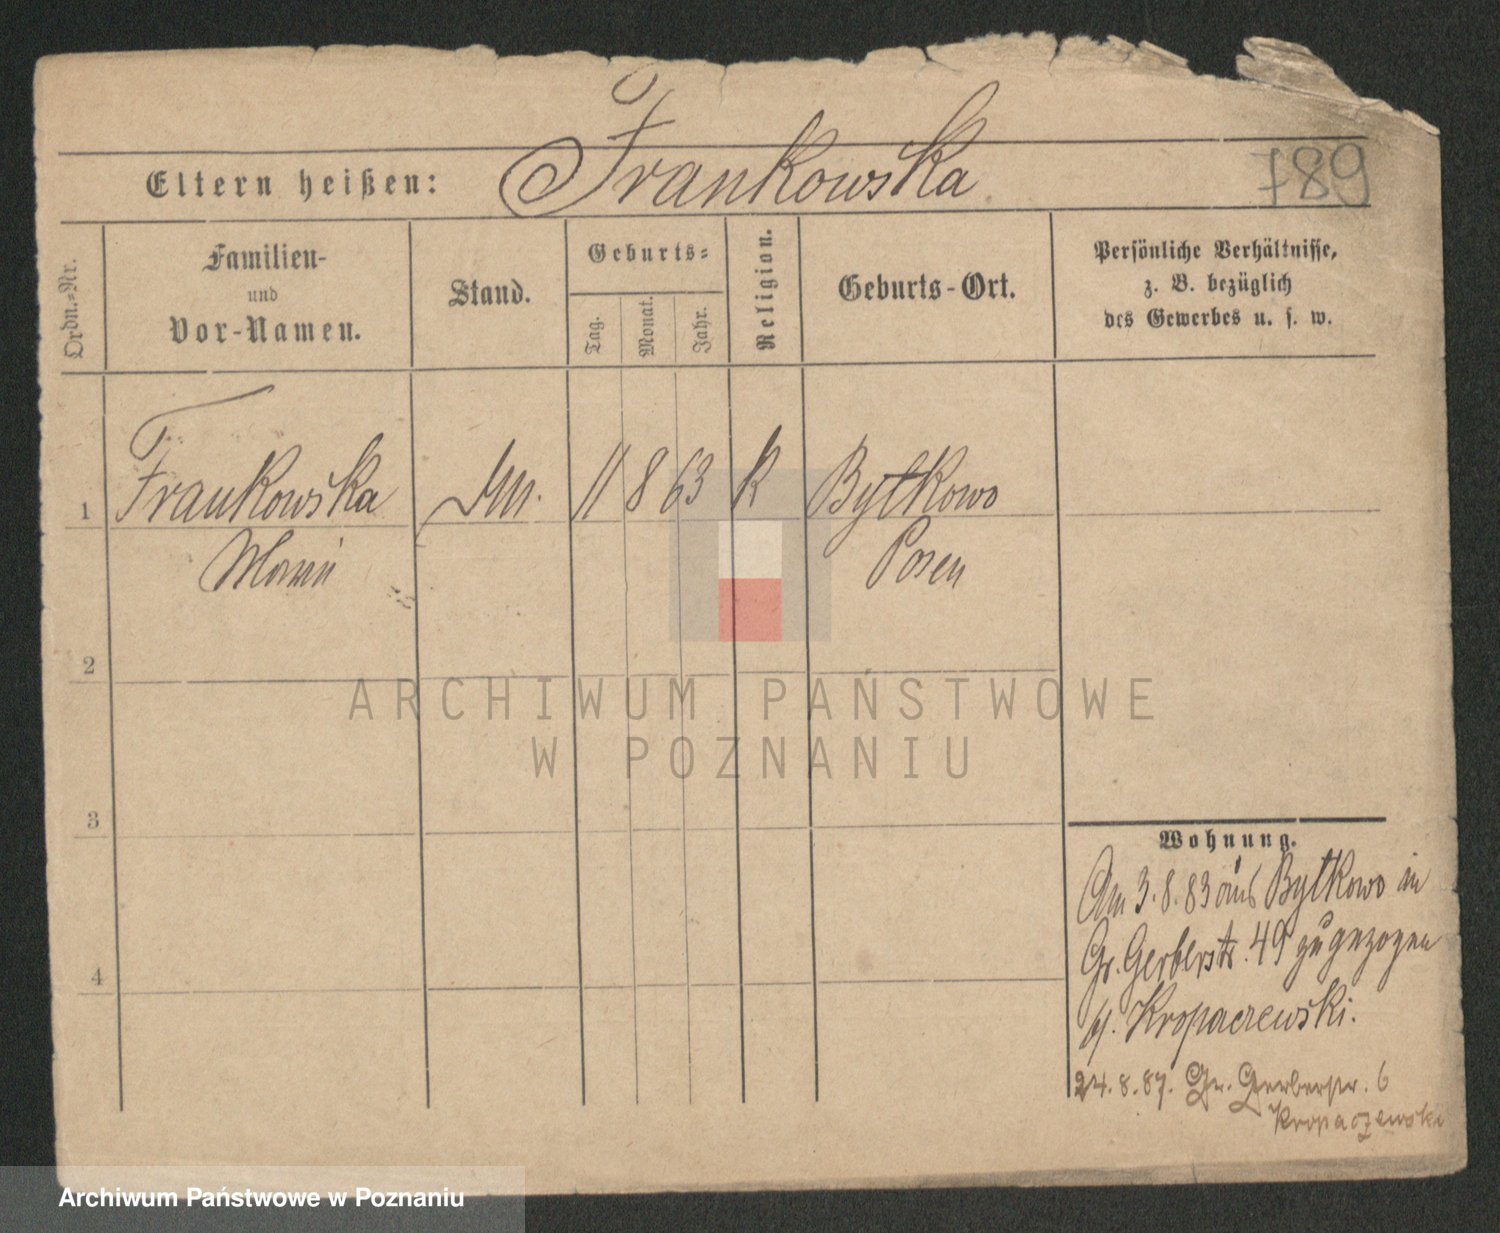 Eltern heißen: Frankowska
789
Ordn.-Nr.
Familien-
und
Vor-Namen.
Stand.
Geburts-
Tag.
Monat.
Jahr.
Religion.
Geburts-Ort.
Persönliche Verhältnisse,
z. B. bezüglich
des Gewerbes u. s. w.
1 Frankowska 11 8 63 k Bytkowo
Marie Posen
2
3
4
Wohnung.
Am 3. 8. 83 aus Bytkowo in
Gr. Gerberstr. 49 zugezogen
b/. Kropaczewski.
24. 8. 87. Gr. Gerberstr. 6
Kropaczewska
ARCHIWUM PAŃSTWOWE
W POZNANIU
Archiwum Państwowe w Poznaniu